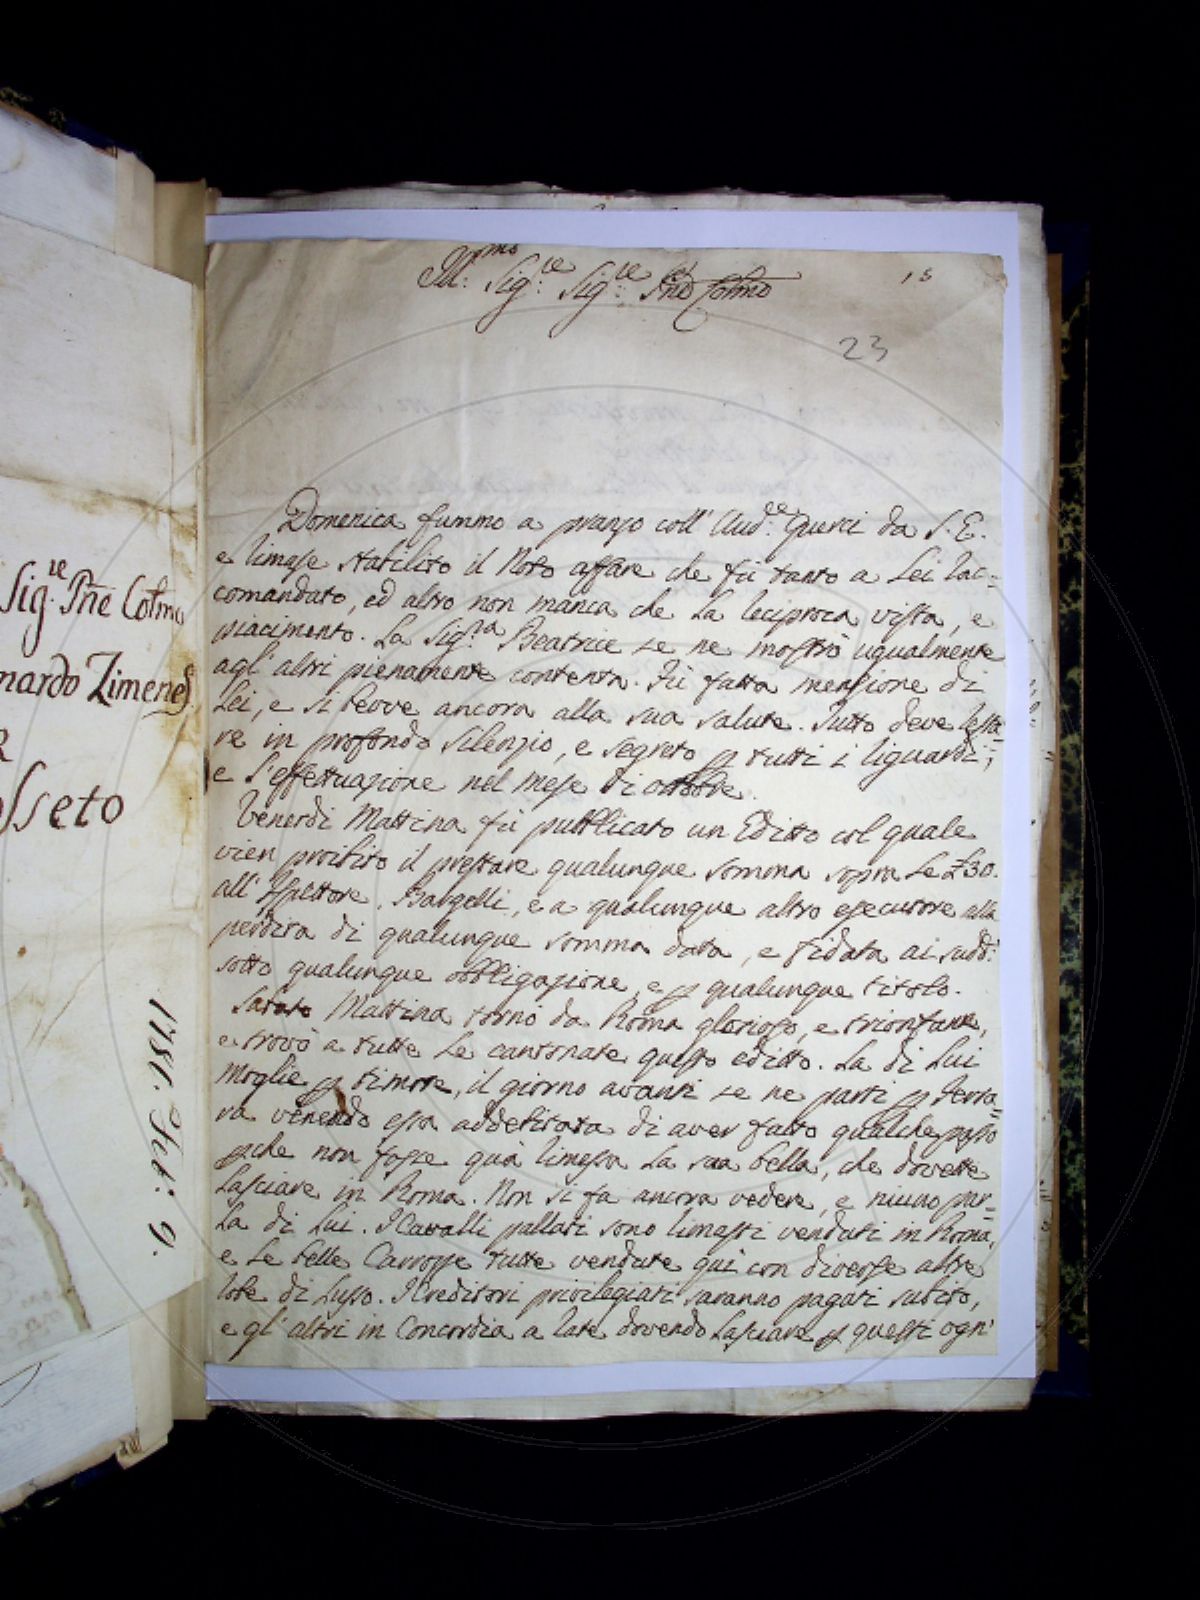 Ill.mo Sig.re Sig.re Pne Colmo
13
23
Domenica fummo a pranzo coll' Aud.re Querci da S. E.
e rimase stabilito il Noto affare che fù tanto a Lei rac=
comandato, ed altro non manca che la reciproca vista, e
piacimento. La Sig.ra Beatrice se ne mostrò ugualmente
agl' altri pienamente contenta. Fù fatta menzione di
Lei, e si bevve ancora alla sua salute. Tutto deve resta=
re in profondo silenzio, e segreto p tutti i riguardi;
e l'effettuazione nel mese di ottobre.
Venerdi Mattina fù pubblicato un Editto col quale
vien proibito il prestare qualunque somma sopra le £30.
all' Ispettore, Bargelli, e a qualunque altro esecutore alla
perdita di qualunque somma data, e fidata ai sudd:
sotto qualunque obbligazione, e p qualunque titolo.
Sabato Mattina tornò da Roma glorioso, e trionfante,
e trovò a tutte le cantonate questo editto. La di Lui
Moglie p timore, il giorno avanti se ne partì p Ferra=
ra venendo essa addebitata di aver fatto qualche passo
pche non fosse quà rimessa la sua bella, che dovette
lasciare in Roma. Non si fa ancora vedere, e niuno par=
la di Lui. I Cavalli pallati sono rimasti venduti in Roma,
e le belle Carrozze tutte vendute quì con diverse altre
robe di lusso. I Creditori privilegiati saranno pagati subito,
e gl' altri in Concordia a rate dovendo lasciare p questi ogn'
Sig.re Pne Colmo
nardo Zimenes
sseto
1781. Feb: 9.